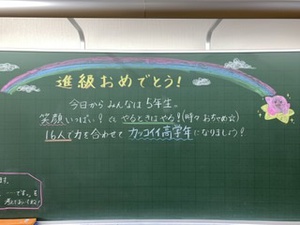 進級おめでとう!
今日から みんなは 5年生。
笑顔いっぱい! で、やるときはやる! (時々 おちゃめ☆)
16人で力を合わせて カッコイイ高学年 になりましょう!
ます。
です。を